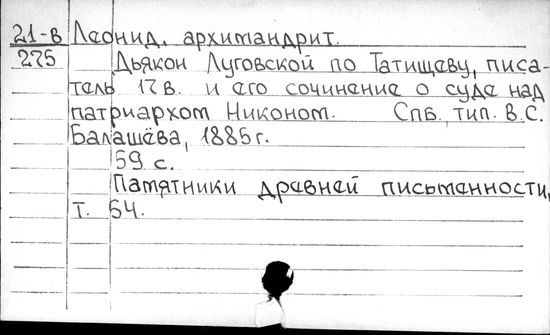 21-в Леонид, архимандрит.
275 Дьякон Луговской по Татищеву, писа-
тель 17 в. и его сочинение о суде над
патриархом Никоном. Спб, тип. В.С.
Балашёва, 1885г.
59 с.
Памятники древней письменности,
т. 54.